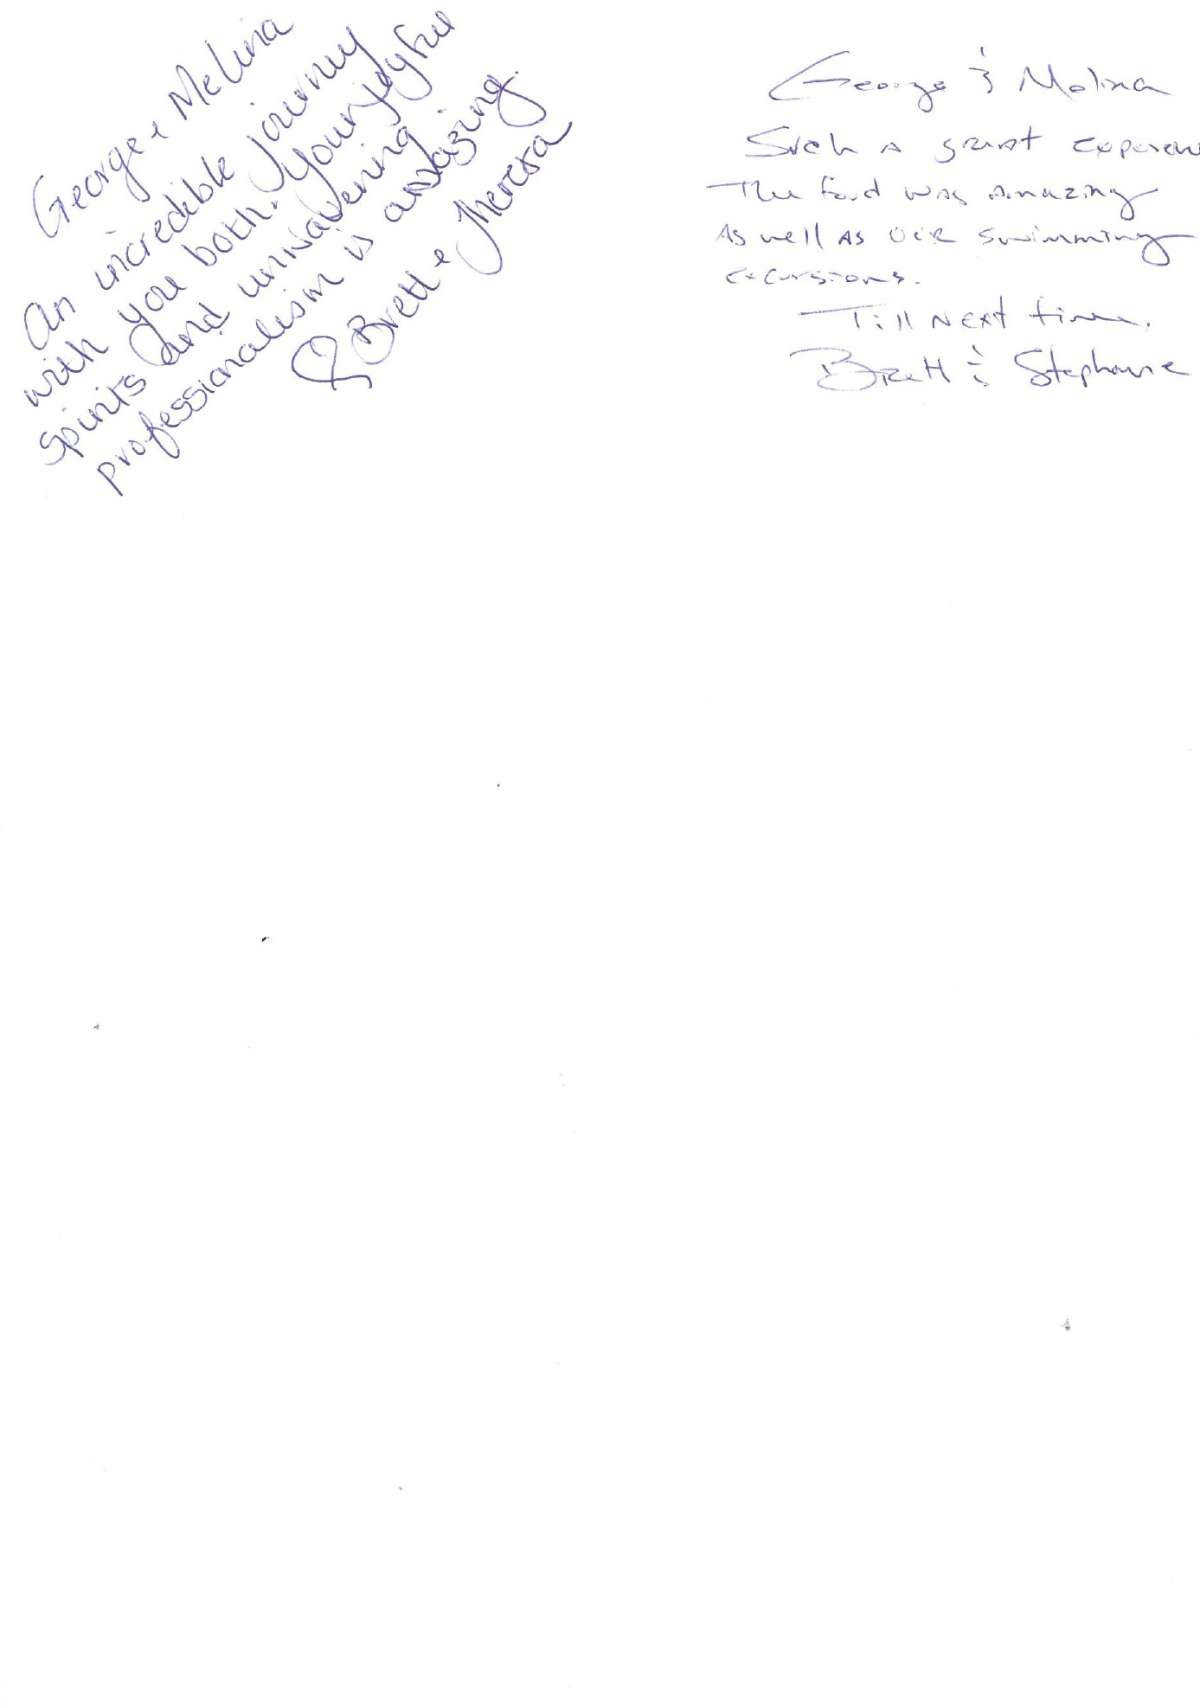 George & Melina
An incredible journey
with you both. Your joyful
spirits and unwavering
professionalism is amazing.
Brett & Theresa
George & Melina
Such a great experien
The food was amazing
As well as our swimming
excursions.
Till Next time.
Brett & Stephanie